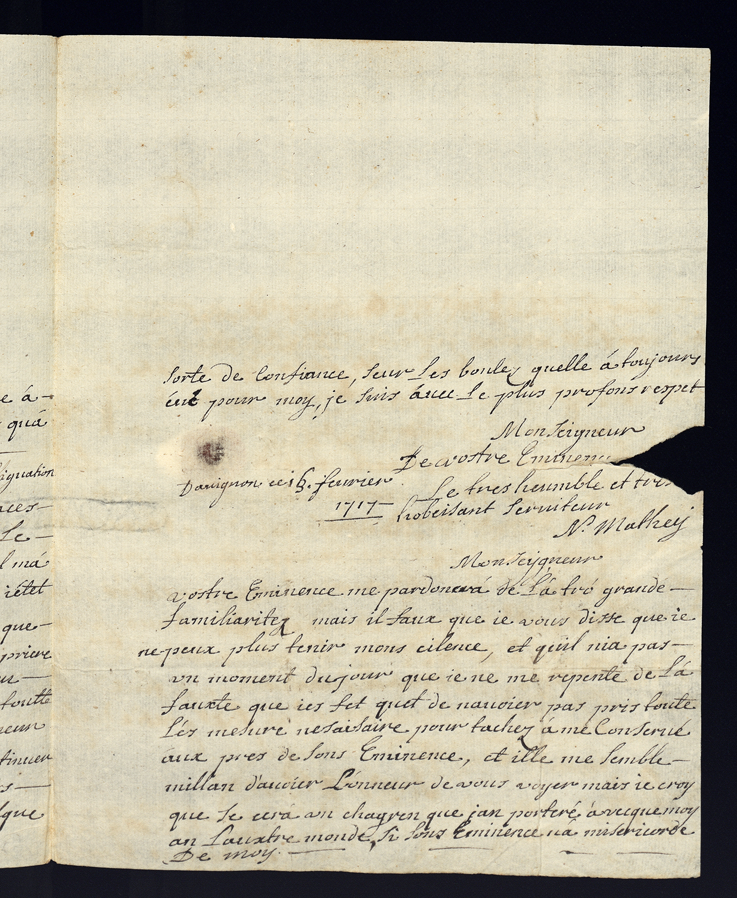 e à-
quá
signation
aces-
Le-
l má
ietet
que-
priere
ur-
toutte
neur
tinuer
s-
sque
sorte de Confiance, seur Les boulez quelle á toujours
eut pour moy, je suis ávec Le plus profons respet
Monseigneur
De vostre Eminence
Davignon ce 16. feurier
1717
Le tres heumble et tres
hobeisant serviteur
N. Mathey
Monseygneur
vostre Eminence me pardonnerá de Lá tró grande-
familiaritez mais il faux que ie vous disse que ie
ne peux plus tenir mons cilence, et quil nia pas-
un moment du jour que ie ne me repente de Lá
fauxte que ies fet quet de navoier pas pris toute
Lés mesure nesaisaire pour tachez á me Conservé
aux pres de sons Eminence, et ille me semble-
millan d'avoier L'onneur de vous voyer mais ie croy
que se cerá un chagren que jan porteré ávecque moy
an Lauxtre monde, si sons Eminence ná misericorde
De moy.